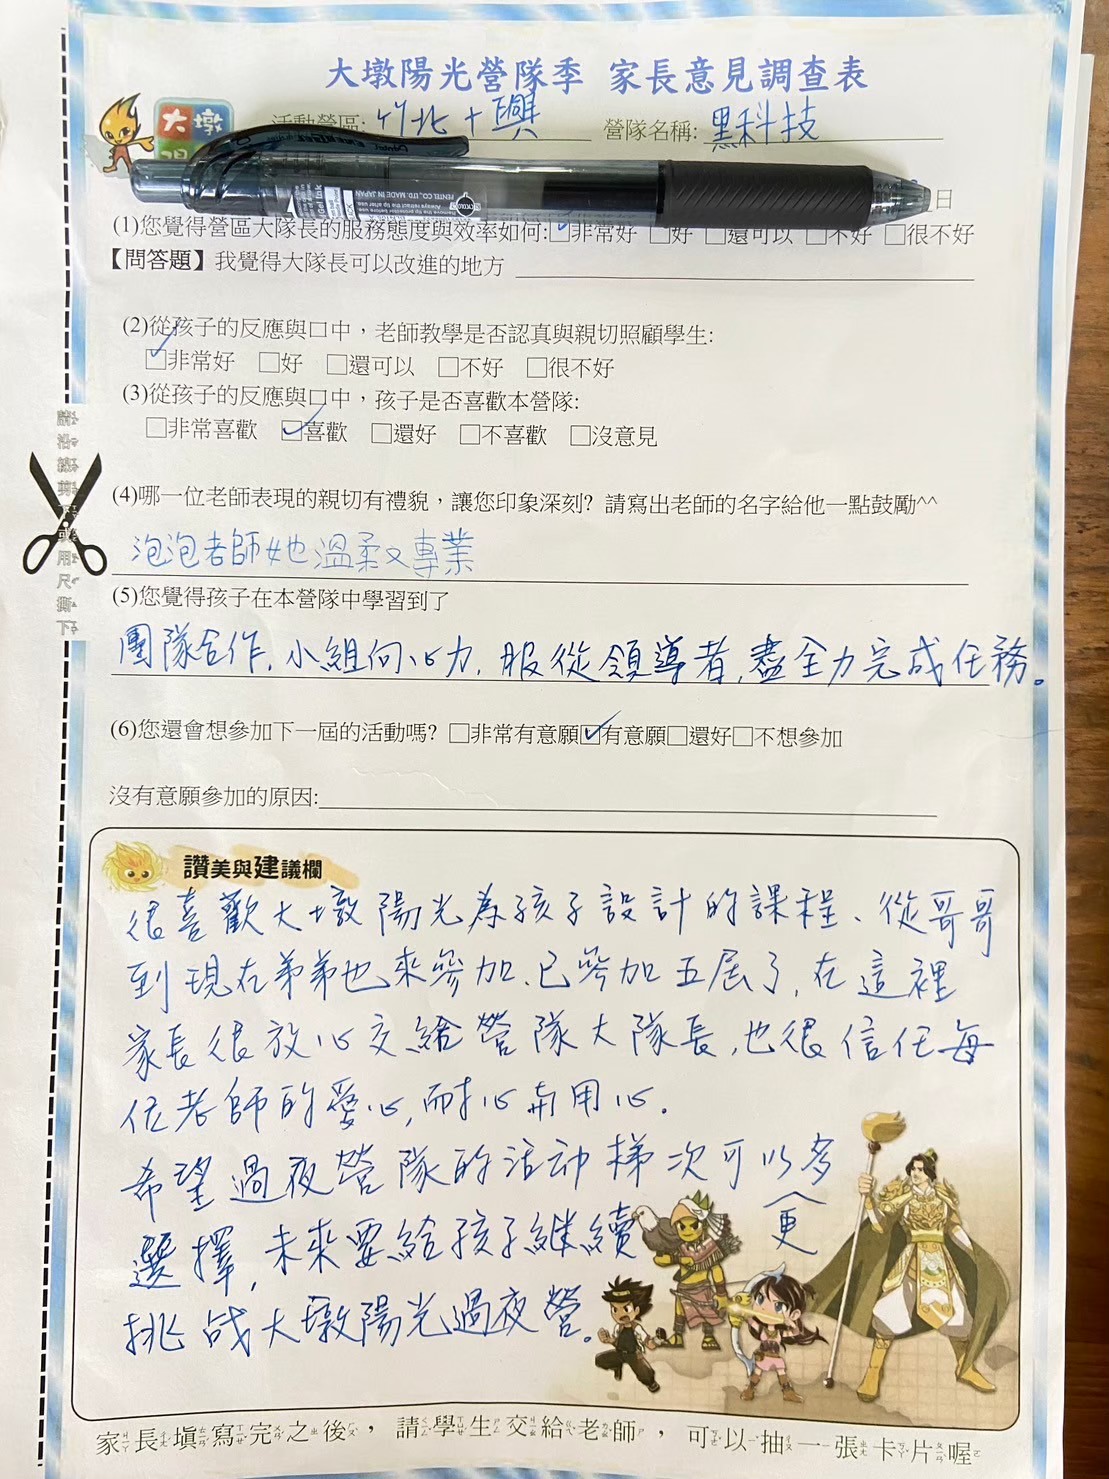 大墩陽光營隊季 家長意見調查表
大墩
活動營區: 竹北十興 營隊名稱: 黑科技
日
(1)您覺得營區大隊長的服務態度與效率如何:☑非常好 □好 □還可以 □不好 □很不好
【問答題】我覺得大隊長可以改進的地方
(2)從孩子的反應與口中，老師教學是否認真與親切照顧學生:
☑非常好 □好 □還可以 □不好 □很不好
(3)從孩子的反應與口中，孩子是否喜歡本營隊:
□非常喜歡 ☑喜歡 □還好 □不喜歡 □沒意見
請沿線剪下或用尺撕下
(4)哪一位老師表現的親切有禮貌，讓您印象深刻? 請寫出老師的名字給他一點鼓勵^^
泡泡老師她溫柔又專業
(5)您覺得孩子在本營隊中學習到了
團隊合作, 小組向心力, 服從領導者, 盡全力完成任務。
(6)您還會想參加下一屆的活動嗎? □非常有意願☑有意願□還好□不想參加
沒有意願參加的原因:
讚美與建議欄
很喜歡大墩陽光為孩子設計的課程、從哥哥
到現在弟弟也來參加、已參加五屆了, 在這裡
家長很放心交給營隊大隊長, 也很信任每
位老師的愛心, 耐心與用心.
希望過夜營隊的活動梯次可以更多
選擇, 未來要給孩子繼續
挑战大墩陽光過夜營。
家長填寫完之後，請學生交給老師，可以抽一張卡片喔